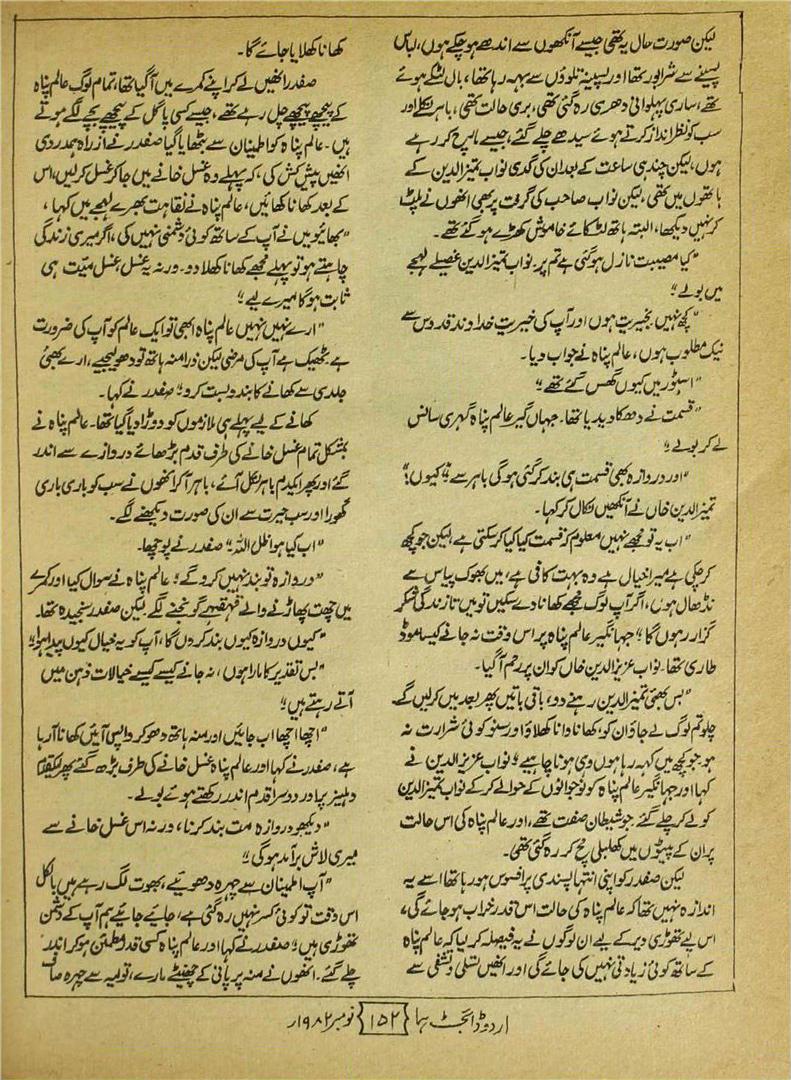 لیکن صورت حال یہ تھی جیسے آنکھوں سے اندھے ہو چکے ہوں، لباس
پسینے سے شرابور تھا اور پسینہ تلوؤں سے بہہ رہا تھا، بال لٹکے ہوئے
تھے، ساری پہلوانی دھری رہ گئی تھی، بری حالت تھی، باہر نکلے اور
سب کو نظر انداز کرتے ہوئے سیدھے چلے گئے، جیسے مارچ کر رہے
ہوں، لیکن چند ہی ساعت کے بعد ان کی گدی نواب تمیز الدین کے
ہاتھوں میں تھی، لیکن نواب صاحب کی گرفت پر بھی انھوں نے پلٹ
کر نہیں دیکھا، البتہ ہاتھ لٹکائے خاموش کھڑے ہو گئے تھے۔
"کیا مصیبت نازل ہو گئی ہے تم پر۔ نواب تمیز الدین غصیلے لہجے
میں بولے"
"کچھ نہیں بخیریت ہوں اور آپ کی خیریت خداوند قدوس سے
نیک مطلوب ہوں، عالم پناہ نے جواب دیا۔
"اسٹور میں کیوں گھس گئے تھے"
"قسمت نے دھکا دیدیا تھا۔ جہاں گیر عالم پناہ گہری سانس
لے کر بولے"
"اور دروازہ بھی قسمت ہی بند کر گئی ہو گی باہر سے" کیوں؟"
تمیز الدین خاں نے آنکھیں نکال کر کہا۔
"اب یہ تو مجھے نہیں معلوم کہ قسمت کیا کیا کر سکتی ہے، لیکن جو کچھ
کر چکی ہے میرا خیال ہے وہ بہت کافی ہے، میں بھوک پیاس سے
نڈھال ہوں، اگر آپ لوگ مجھے کھانا دے سکیں تو میں تازندگی شکر
گزار رہوں گا" جہانگیر عالم پناہ پر اس وقت نہ جانے کیسا موڈ
طاری تھا۔ نواب عزیز الدین خاں کو ان پر رحم آ گیا۔
"بس بھئی تمیز الدین رہنے دو، باقی باتیں پھر بعد میں کر لیں گے۔
چلو تم لوگ لے جاؤ ان کو، کھانا وانا کھلاؤ اور سنو کوئی شرارت نہ
ہو۔ جو کچھ میں کہہ رہا ہوں وہی ہونا چاہیے" نواب عزیز الدین نے
کہا اور جہانگیر عالم پناہ کو نوجوانوں کے حوالے کر کے نواب تمیز الدین
کو لے کر چلے گئے۔ جو شیطان صفت تھے، اور عالم پناہ کی اس حالت
پر ان کے پیٹوں میں کھلبلی مچ کر رہ گئی تھی۔
لیکن صفدر کو اپنی انتہا پسندی پر افسوس ہو رہا تھا اسے یہ
اندازہ نہیں تھا کہ عالم پناہ کی حالت اس قدر خراب ہو جائے گی،
اس لیے تھوڑی دیر کے لیے ان لوگوں نے یہ فیصلہ کر لیا کہ عالم پناہ
کے ساتھ کوئی زیادتی نہیں کی جائے گی اور انھیں تسلی و تشفی سے
کھانا کھلایا جائے گا۔
صفدر انھیں لے کر اپنے کمرے میں آ گیا تھا، تمام لوگ عالم پناہ
کے پیچھے پیچھے چل رہے تھے، جیسے کسی پاگل کے پیچھے بچے لگے ہوتے
ہیں۔ عالم پناہ کو اطمینان سے بٹھایا گیا صفدر نے از راہ ہمدردی
انھیں پیش کش کی، کہ پہلے وہ غسل خانے میں جا کر غسل کر لیں، اس
کے بعد کھانا کھائیں، عالم پناہ نے نقاہت بھرے لہجے میں کہا،
"بھائیو میں نے آپ کے ساتھ کوئی دشمنی نہیں کی، اگر میری زندگی
چاہتے ہو تو پہلے مجھے کھانا کھلا دو۔ ورنہ یہ غسل، غسل میّت ہی
ثابت ہو گا میرے لیے"
"ارے نہیں نہیں عالم پناہ ابھی تو ایک عالم کو آپ کی ضرورت
ہے۔ ٹھیک ہے آپ کی مرضی لیکن ذرا منہ ہاتھ تو دھو لیجیے، ارے بھئی
جلدی سے کھانے کا بندوبست کرو" صفدر نے کہا۔
کھانے کے لیے پہلے ہی ملازموں کو دوڑا دیا گیا تھا۔ عالم پناہ نے
بمشکل تمام غسل خانے کی طرف قدم بڑھائے دروازے سے اندر
گئے اور پھر ایکدم باہر نکل آئے، باہر آ کر انھوں نے سب کو باری باری
گھورا اور سب حیرت سے ان کی صورت دیکھنے لگے۔
"اب کیا ہوا ظل اللہ" صفدر نے پوچھا۔
"دروازہ تو بند نہیں کرو گے" عالم پناہ نے سوال کیا اور کمرے
میں چھت پھاڑنے والے قہقہے گونجنے لگے۔ لیکن صفدر سنجیدہ تھا۔
"کیوں دروازہ کیوں بند کر دوں گا، آپ کو یہ خیال کیوں پیدا ہوا"
"بس تقدیر کا مارا ہوں، نہ جانے کیسے کیسے خیالات ذہن میں
آتے رہتے ہیں"
"اچھا اچھا اب جائیں اور منہ ہاتھ دھو کر واپس آئیں کھانا آ رہا
ہے، صفدر نے کہا اور عالم پناہ غسل خانے کی طرف بڑھ گئے پھر ایک قدم
دہلیز پر اور دوسرا قدم اندر رکھتے ہوئے بولے۔
"دیکھو دروازہ مت بند کرنا، ورنہ اس غسل خانے سے
میری لاش برآمد ہو گی"
"آپ اطمینان سے چہرہ دھوئیے، بھوت لگ رہے ہیں بالکل
اس وقت تو کوئی کسر نہیں رہ گئی ہے، جائیے جائیے ہم آپ کے دشمن
تھوڑی ہیں" صفدر نے کہا اور عالم پناہ کسی قدر مطمئن ہو کر اندر
چلے گئے۔ انھوں نے منہ پر پانی کے چھینٹے مارے، تولیہ سے چہرہ صاف
اردو ڈائجسٹ ہما {۱۵۲} نومبر ۱۹۸۲ء